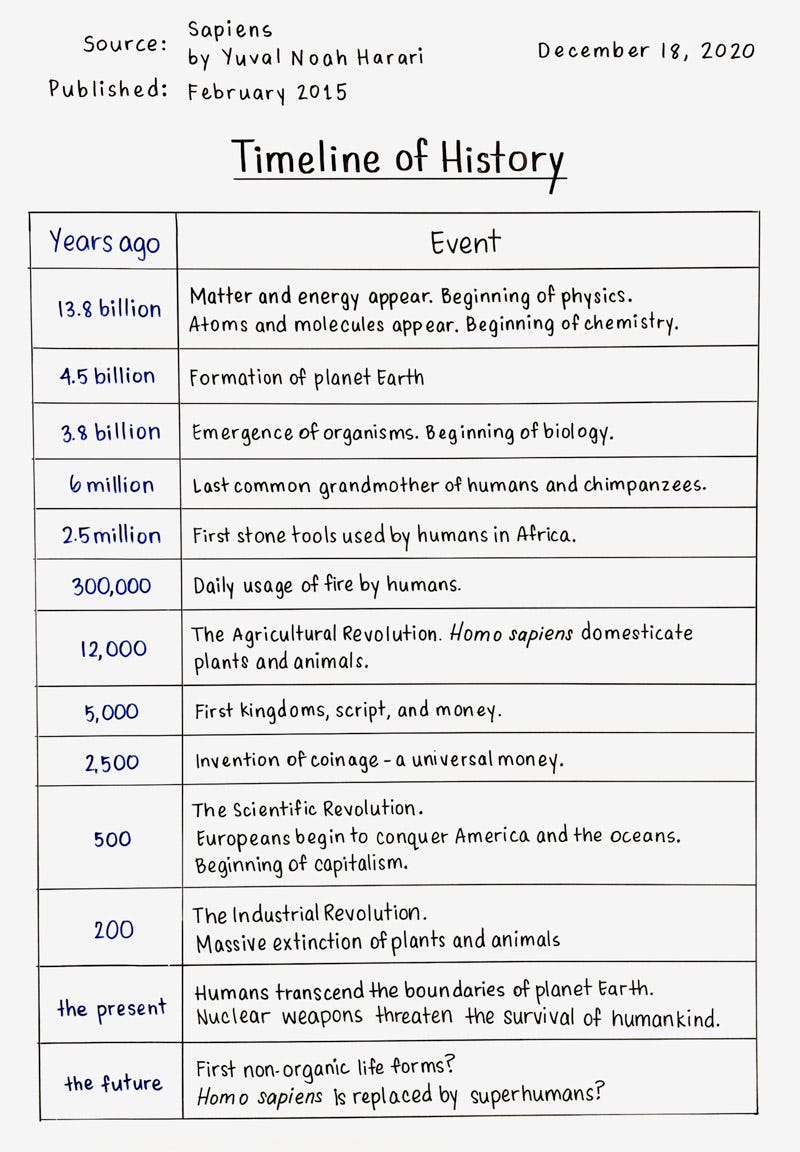 Source: Sapiens
by Yuval Noah Harari
December 18, 2020
Published: February 2015
Timeline of History
Years ago Event
13.8 billion Matter and energy appear. Beginning of physics.
Atoms and molecules appear. Beginning of chemistry.
4.5 billion Formation of planet Earth
3.8 billion Emergence of organisms. Beginning of biology.
6 million Last common grandmother of humans and chimpanzees.
2.5 million First stone tools used by humans in Africa.
300,000 Daily usage of fire by humans.
12,000 The Agricultural Revolution. Homo sapiens domesticate
plants and animals.
5,000 First kingdoms, script, and money.
2,500 Invention of coinage - a universal money.
500 The Scientific Revolution.
Europeans begin to conquer America and the oceans.
Beginning of capitalism.
200 The Industrial Revolution.
Massive extinction of plants and animals
the present Humans transcend the boundaries of planet Earth.
Nuclear weapons threaten the survival of humankind.
the future First non-organic life forms?
Homo sapiens is replaced by superhumans?